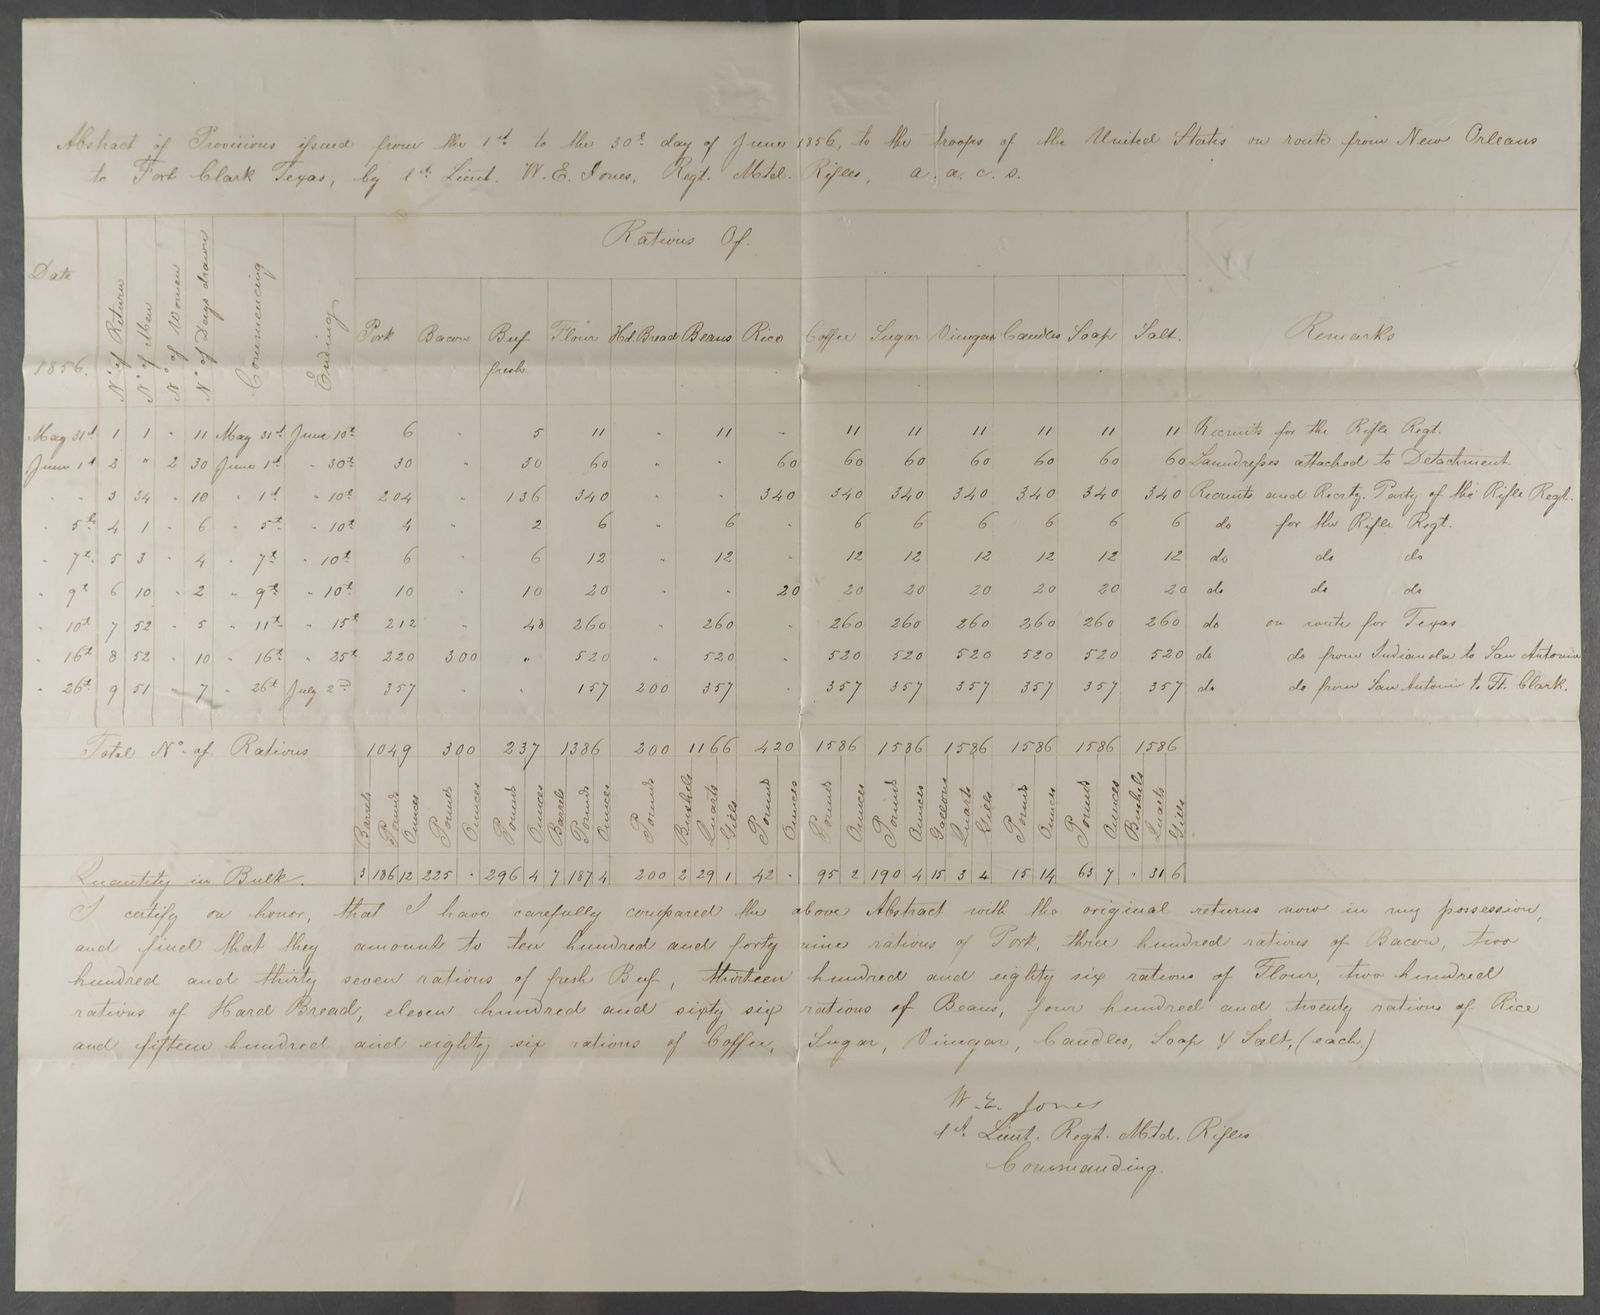 Abstract of Provisions issued from the 1st to the 30th day of June 1856, to the troops of the United States on route from New Orleans
to Fort Clark Texas, by 1st Lieut. W. E. Jones, Regt. Mtd. Rifles, a. a. c. s.
Rations Of.
Date 1856. Nº of Return Nº of Men Nº of Women Nº of Days drawn Commencing Ending Pork Bacon Beef fresh Flour Hd. Bread Beans Rice Coffee Sugar Vinegar Candles Soap Salt. Remarks
May 31st 1 1 " 11 May 31st June 10th 6 " 5 11 " 11 " 11 11 11 11 11 11 Recruits for the Rifle Regt.
June 1st 2 " 2 30 June 1st " 30th 30 " 30 60 " " 60 60 60 60 60 60 60 Laundresses attached to Detachment
" " 3 34 " 10 " 1st " 10th 204 " 136 340 " " 340 340 340 340 340 340 340 Recruits and Recrtg. Party of the Rifle Regt.
" 5th 4 1 " 6 " 5th " 10th 4 " 2 6 " 6 " 6 6 6 6 6 6 do for the Rifle Regt.
" 7th 5 3 " 4 " 7th " 10th 6 " 6 12 " 12 " 12 12 12 12 12 12 do do do
" 9th 6 10 " 2 " 9th " 10th 10 " 10 20 " " 20 20 20 20 20 20 20 do do do
" 10th 7 52 " 5 " 11th " 15th 212 " 48 260 " 260 " 260 260 260 260 260 260 do on route for Texas
" 16th 8 52 " 10 " 16th " 25th 220 300 " 520 " 520 " 520 520 520 520 520 520 do do from Indianola to San Antonio
" 26th 9 51 " 7 " 26th July 2nd 357 " " 157 200 357 " 357 357 357 357 357 357 do do from San Antonio to Ft. Clark.
Total Nº of Rations 1049 300 237 1386 200 1166 420 1586 1586 1586 1586 1586 1586
Barrels Pounds Ounces Pounds Ounces Pounds Ounces Barrels Pounds Ounces Pounds Bushels Quarts Gills Pounds Ounces Pounds Ounces Pounds Ounces Gallons Quarts Gills Pounds Ounces Pounds Ounces Bushels Quarts Gills
Quantity in Bulk. 3 186 12 225 " 296 4 7 187 4 200 2 29 1 42 " 95 2 190 4 15 3 4 15 14 63 7 " 31 6
I certify on honor, that I have carefully compared the above Abstract with the original returns now in my possession,
and find that they amount to ten hundred and forty nine rations of Pork, three hundred rations of Bacon, two
hundred and thirty seven rations of fresh Beef, thirteen hundred and eighty six rations of Flour, two hundred
rations of Hard Bread, eleven hundred and sixty six rations of Beans, four hundred and twenty rations of Rice
and fifteen hundred and eighty six rations of Coffee, Sugar, Vinegar, Candles, Soap & Salt, (each.)
W. E. Jones
1st Lieut. Regt. Mtd. Rifles
Commanding.